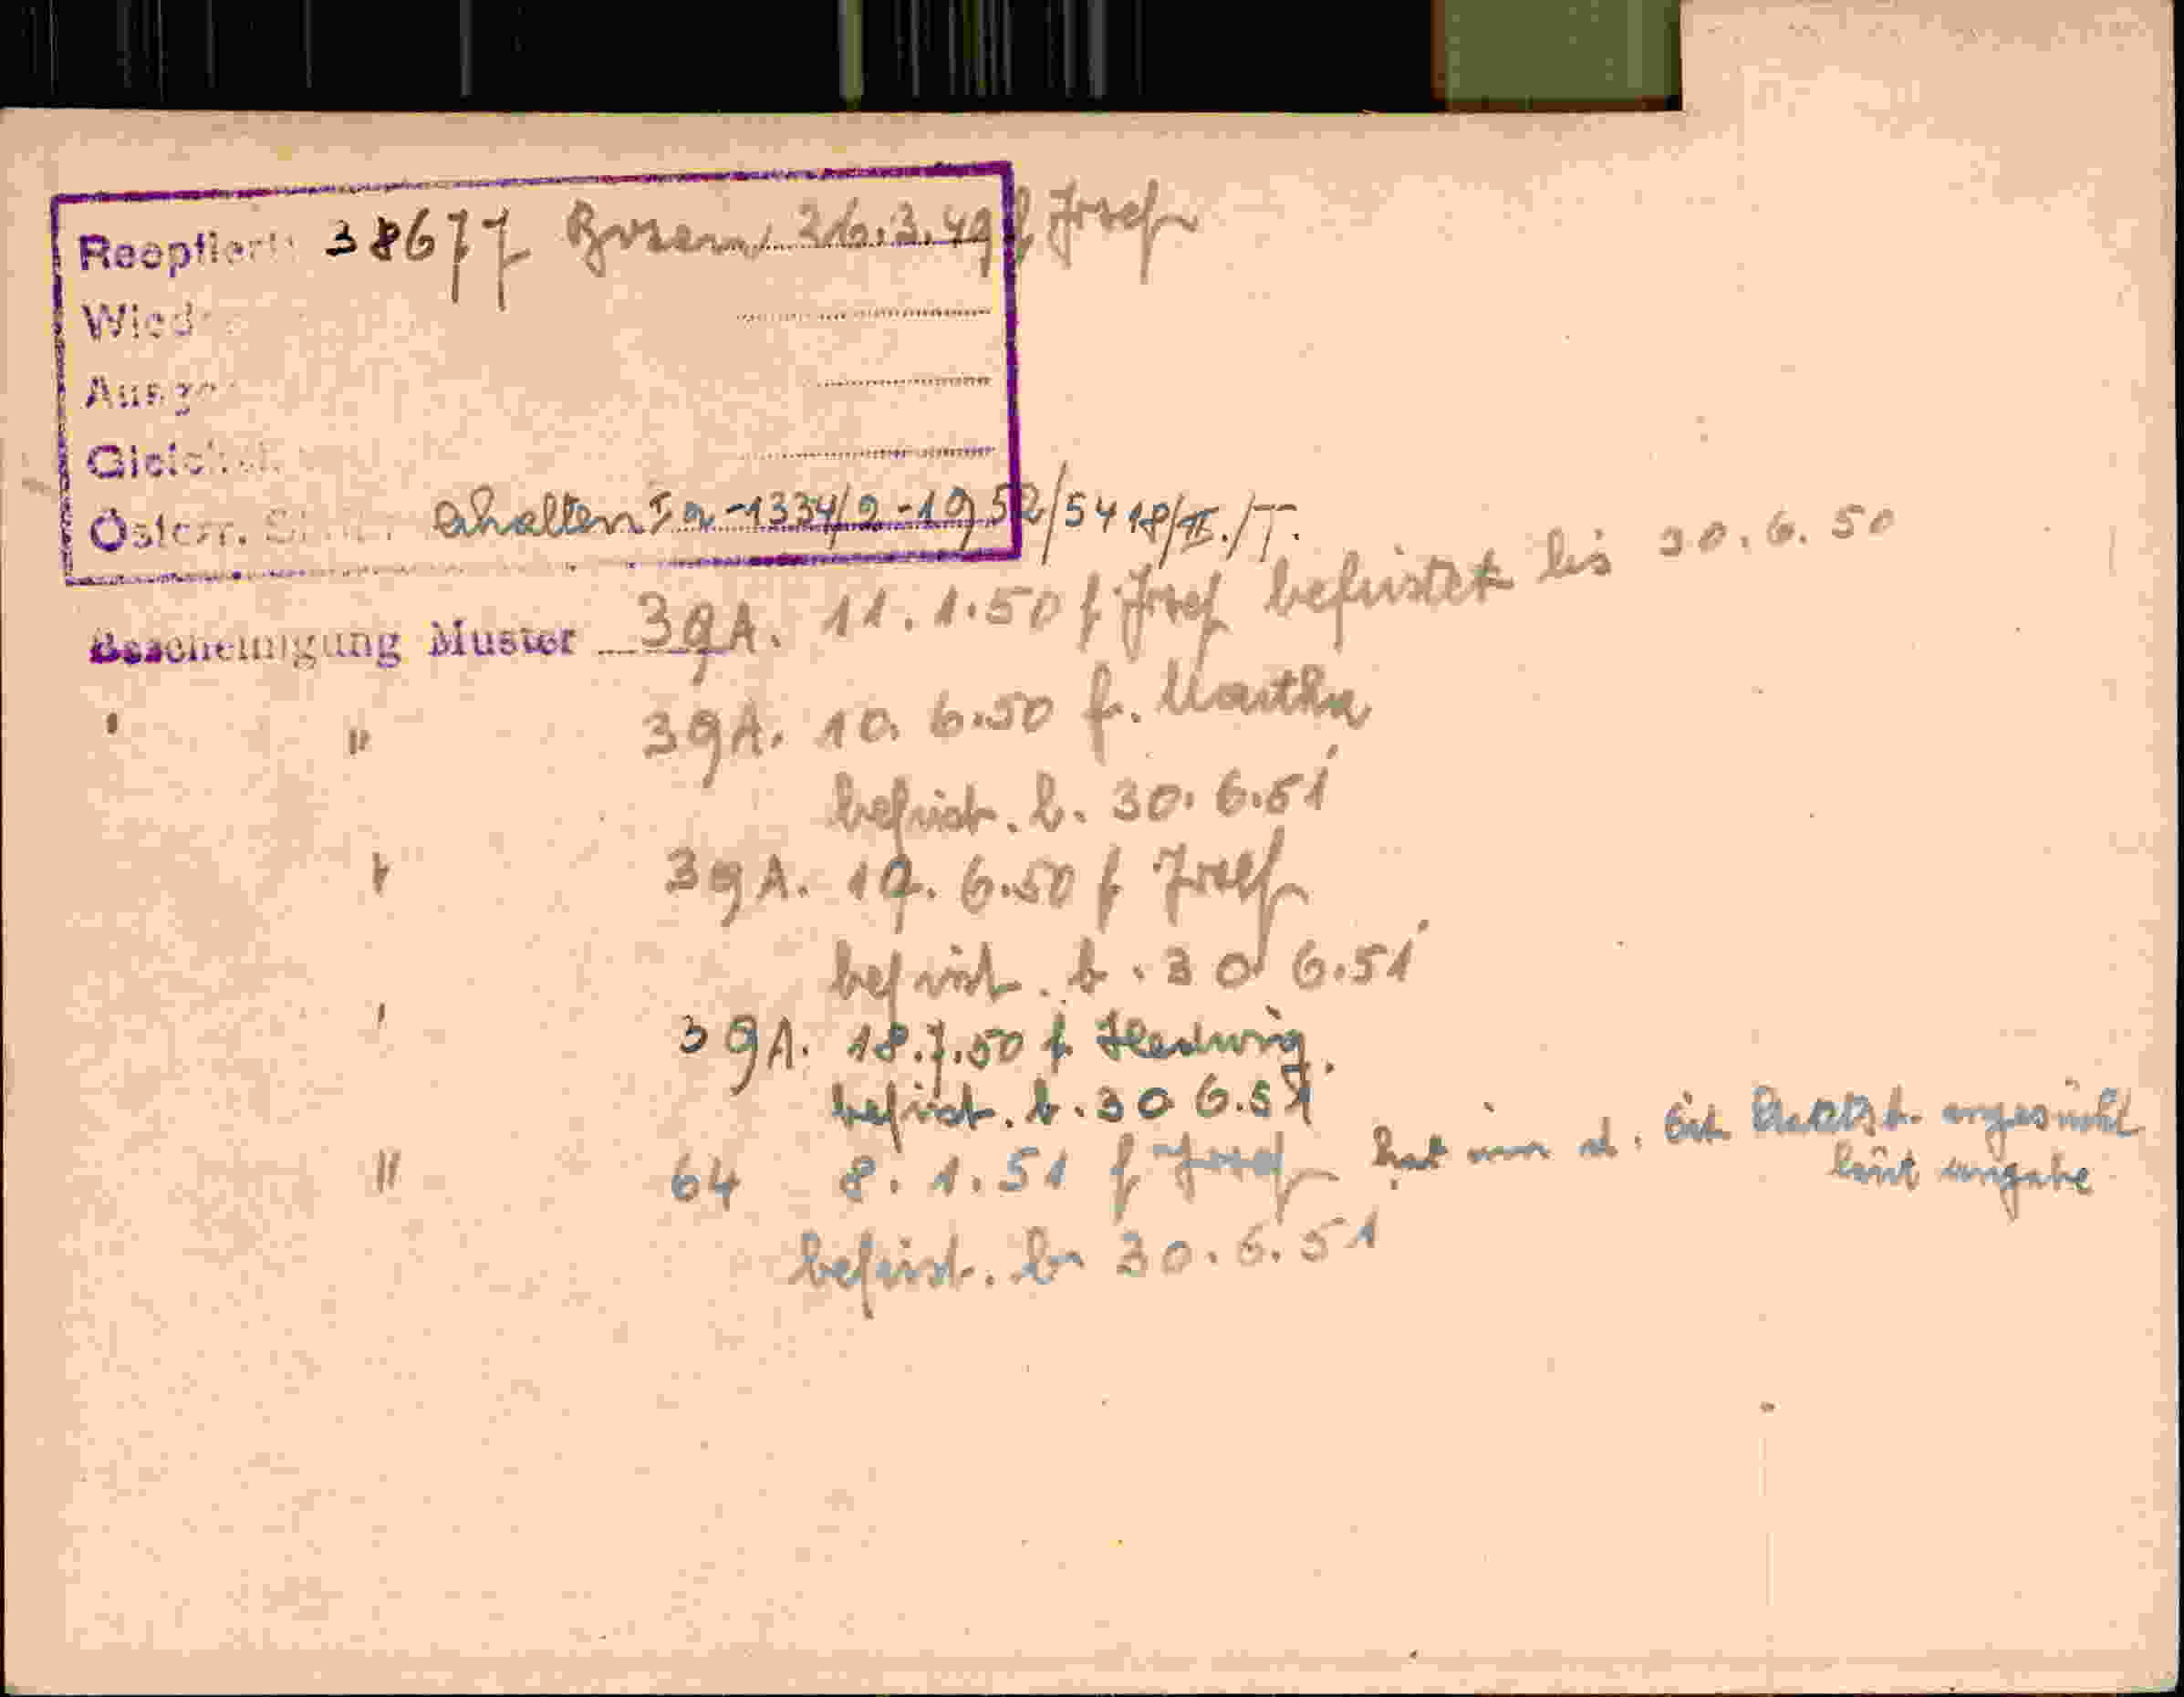 Reoptiert: 38677 Bozen, 26.3.49 f Josef
Wied
Ausge
Gleich
Österr. St erhalten Ia-1334/2-1952/5418/II./T.
Bescheinigung Muster 39A. 11.1.50 f Josef befristet bis 30.6.50
" " 39A. 10.6.50 f. Martha
befrist. b. 30.6.51
" 39A. 19.6.50 f Josef
befrist. b. 30 6.51
" 39A. 18.7.50 f Hedwig.
befrist. b. 30 6.51
" 64 8.1.51 f Josef hat um d. öst. angesucht
laut angabe
befrist. b. 30.6.51